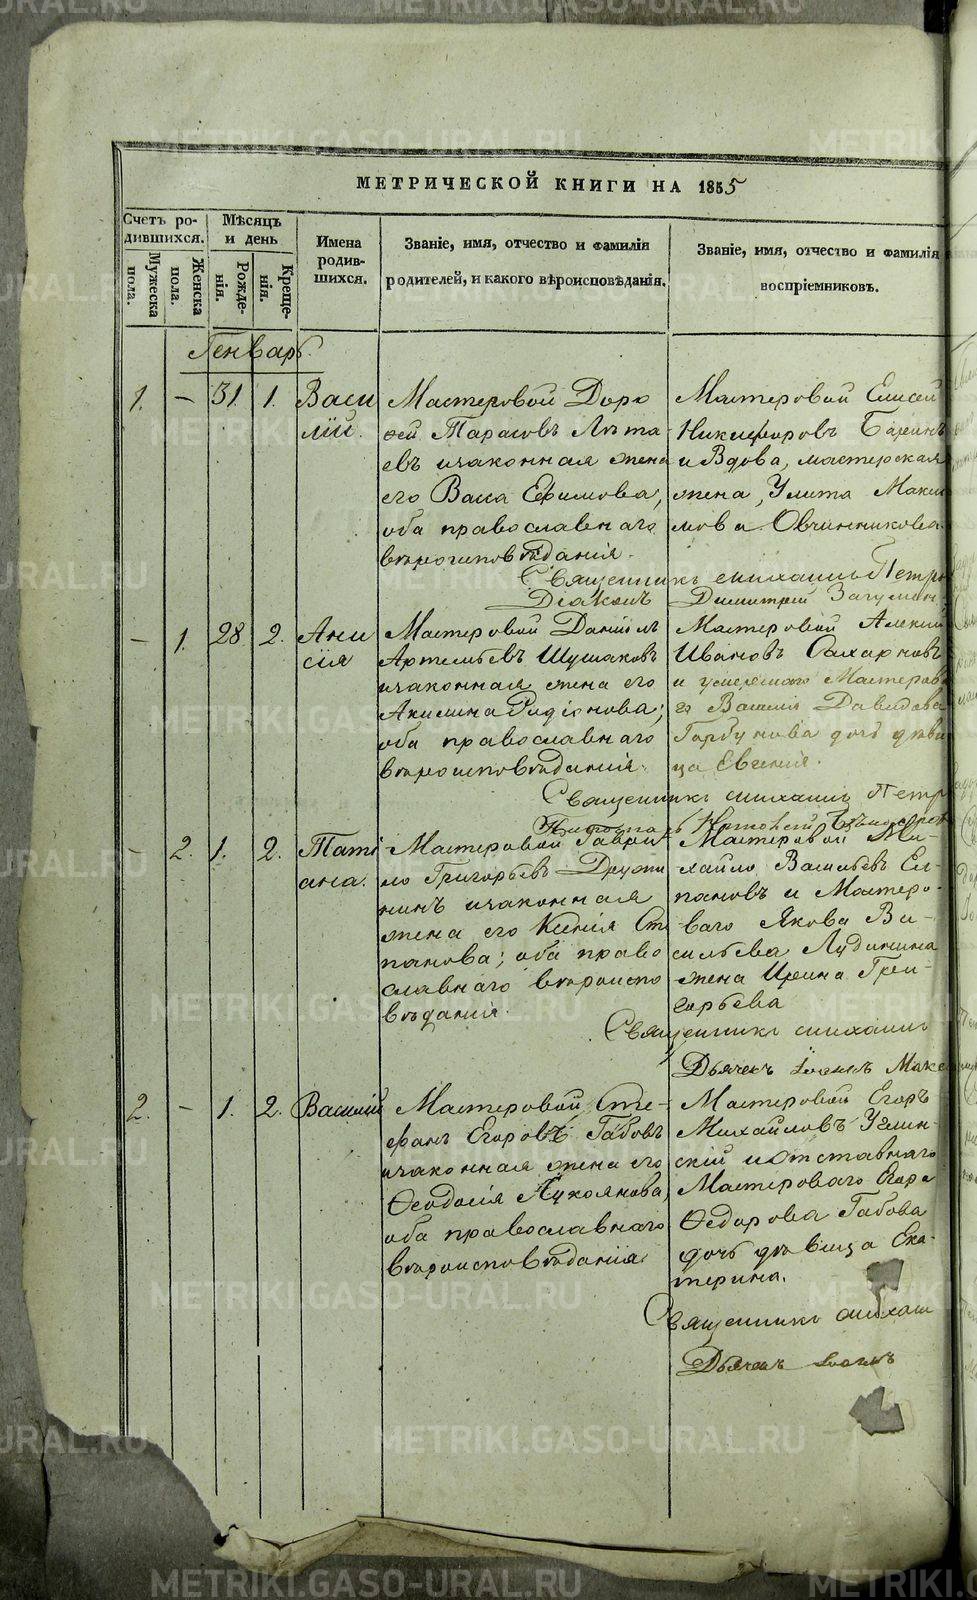 МЕТРИЧЕСКОЙ КНИГИ НА 1855
Счетъ ро-
дившихся.
Мужеска
пола.
Женска
пола.
Мѣсяцъ
и день
Рожде-
нія.
Креще-
нія.
Имена
родив-
шихся.
Званіе, имя, отчество и фамилія
родителей, и какого вѣроисповѣданія.
Званіе, имя, отчество и фамилія
воспріемниковъ.
Генварь.
1. – 31. 1. Васи
лій.
Мастеровой Доро
ѳей Тарасовъ
евъ изаконная жена
его Васса Ефимова,
оба православнаго
вѣроисповѣданія.
Мастеровой Елисей
Никифоровъ
и Вдова, мастерская
жена, Улита Макси
мова Овчинникова.
Священникъ Михаилъ Петро
Діаконъ Димитрій
– 1. 28 2. Ани
сія
Мастеровой Даніилъ
Артемьевъ Шушаковъ
изаконная жена его
Акилина Родіонова;
оба православнаго
вѣроисповѣданія.
Мастеровой Алексій
Ивановъ Сахаровъ
и умершаго Мастерова
го Василія Давидова
Горбунова дочь дѣви
ца Евгенія.
Священникъ Михаилъ Петр
– 2. 1. 2. Таті
ана.
Мастеровой Гаврі
ло Григорьевъ Дружи
нинъ изаконная
жена его Ксенія Сте
панова; оба право
славнаго вѣроиспо
вѣданія.
Мастеровой Ми-
хайло Васильевъ Ел-
пановъ и Мастеро-
ваго Якова Ва-
сильева Лудинина
жена Ирина Гри-
горьева
Священникъ Михаилъ
Дьячекъ Іоаннъ Макс
2. – 1. 2. Василій
Мастеровой Сте-
фанъ Егоровъ Габовъ
изаконная жена его
Ѳеодосія Лукоянова,
оба православнаго
вѣроисповѣданія.
Мастеровой Егоръ
Михайловъ Углин-
скій и отставнаго
Мастероваго Егора
Ѳедорова Габова
дочь дѣвица Ека-
терина.
Священникъ Михаил
Дьячекъ Іоаннъ
METRIKI.GASO-URAL.RU